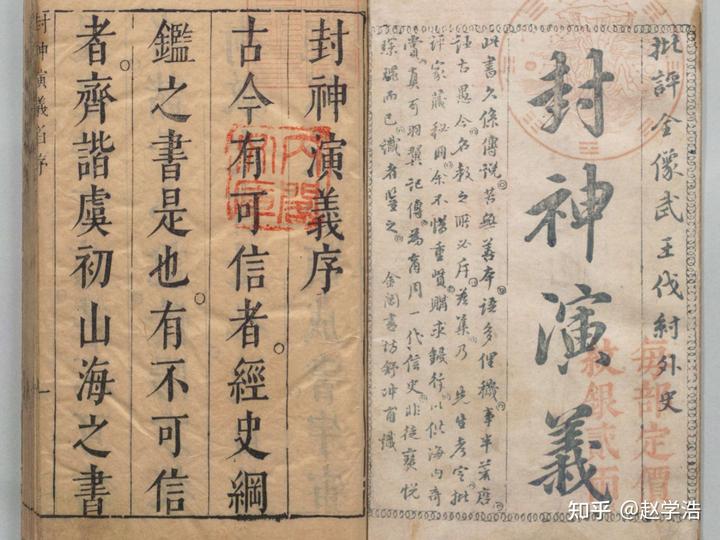 批評全像武王伐紂外史
每部定價
紋銀貳両
封神演義
此書久係傳說苦無善本語多俚穢事半荒唐
古愚今名教之所必斥茲集乃 先生考定批
評家藏秘冊余不惜重貲購求鋟行以供海内奇
賞真可羽翼記傳為商周一代信史非徒寶悅
琛瑰而已識者鑒之 金閶書坊舒冲甫識
封神演義序
古今有可信者經史綱
鑑之書是也有不可信
者齊諧虞初山海之書
封神演義序
一
知乎 @赵学浩